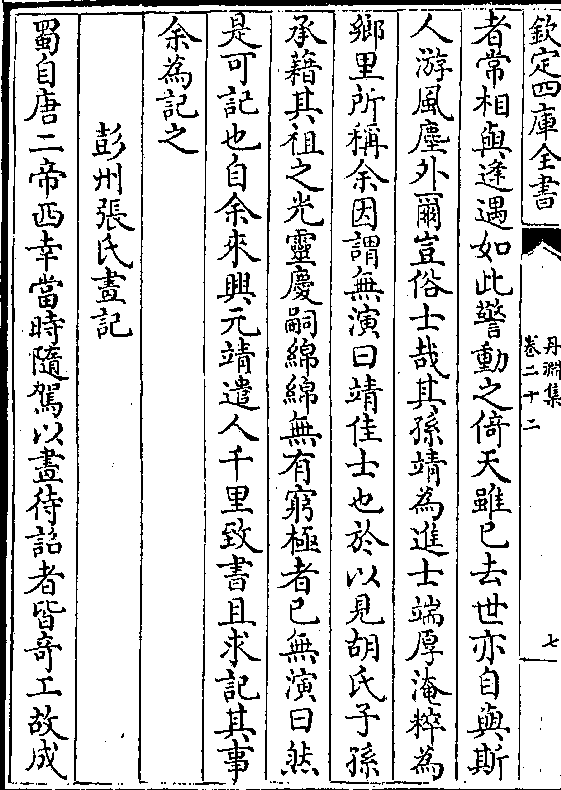 欽定四庫全書
丹淵集
卷二十二
七
者常相與逢遇如此警動之倚天雖已去世亦自與斯
人游風塵外爾豈俗士哉其孫靖為進士端厚淹粹為
鄉里所稱余因謂無演曰靖佳士也於以見胡氏子孫
承藉其祖之光靈慶嗣綿綿無有窮極者已無演曰然
是可記也自余來興元靖遣人千里致書且求記其事
余為記之
彭州張氏畫記
蜀自唐二帝西幸當時隨駕以畫待詔者皆奇工故成